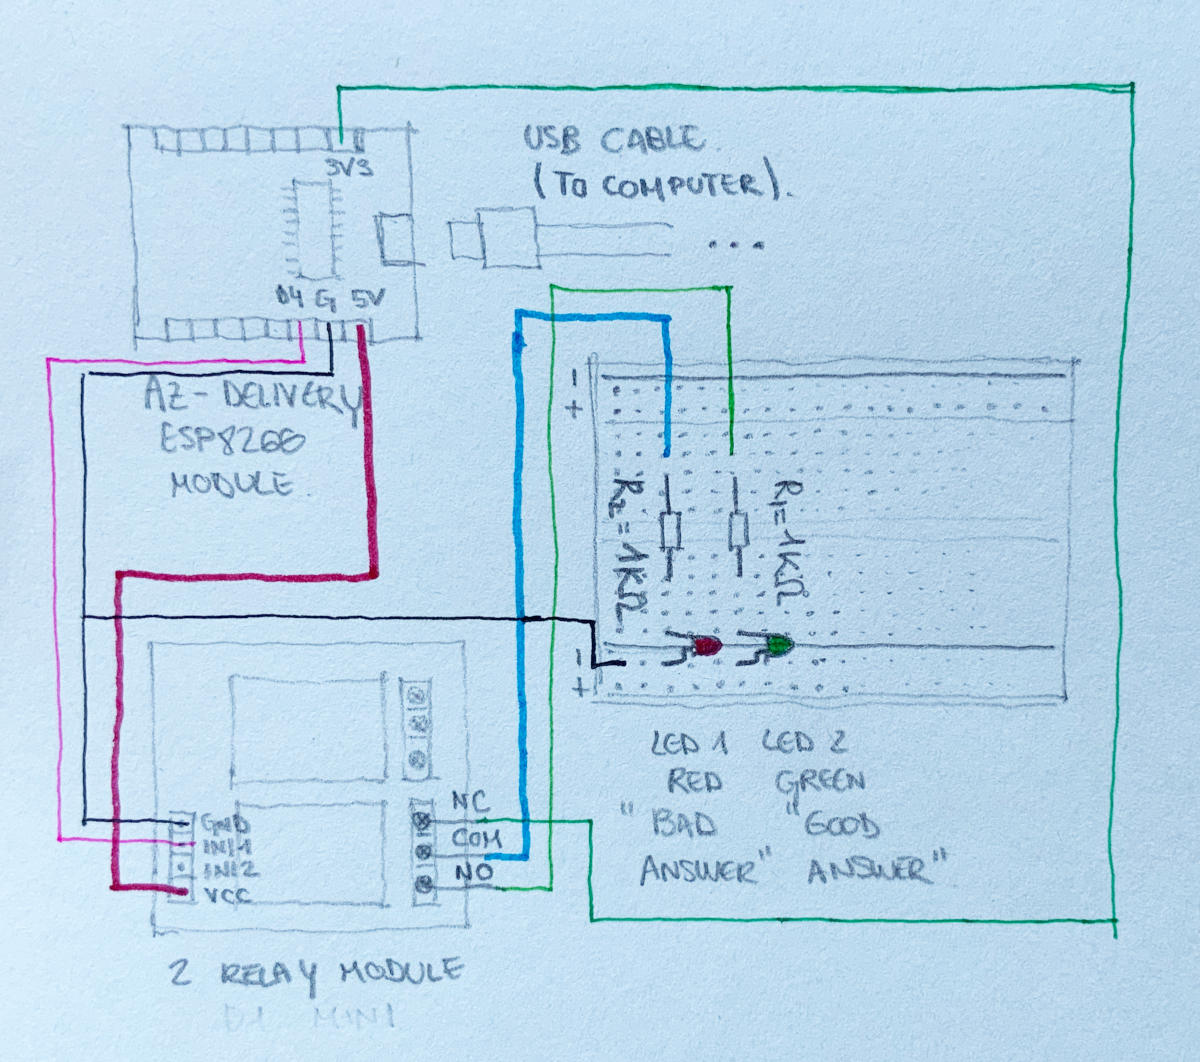 3V3
USB CABLE.
(TO COMPUTER).
...
D4 G 5V
AZ-DELIVERY
ESP8266
MODULE.
-
+
R2=1KΩ
R1=1KΩ
-
+
LED 1 LED 2
RED GREEN
"BAD "GOOD
ANSWER" ANSWER"
GND
IN1
IN2
VCC
NC
COM
NO
2 RELAY MODULE
D1 MINI